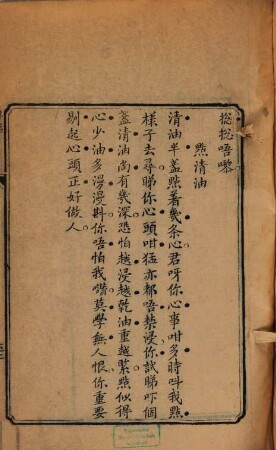 搃搃唔嚟
點清油
清油半盞點著幾条心君呀你心事咁多時呌我點
樣子去尋睇你心頭咁猛亦都唔禁浸你試睇吓個
盞清油尚有幾深恐怕越浸越乾油重越緊點似得
心少油多漫漫斟你唔怕我嗜莫學無人恨你重要
剔起心頭正好做人